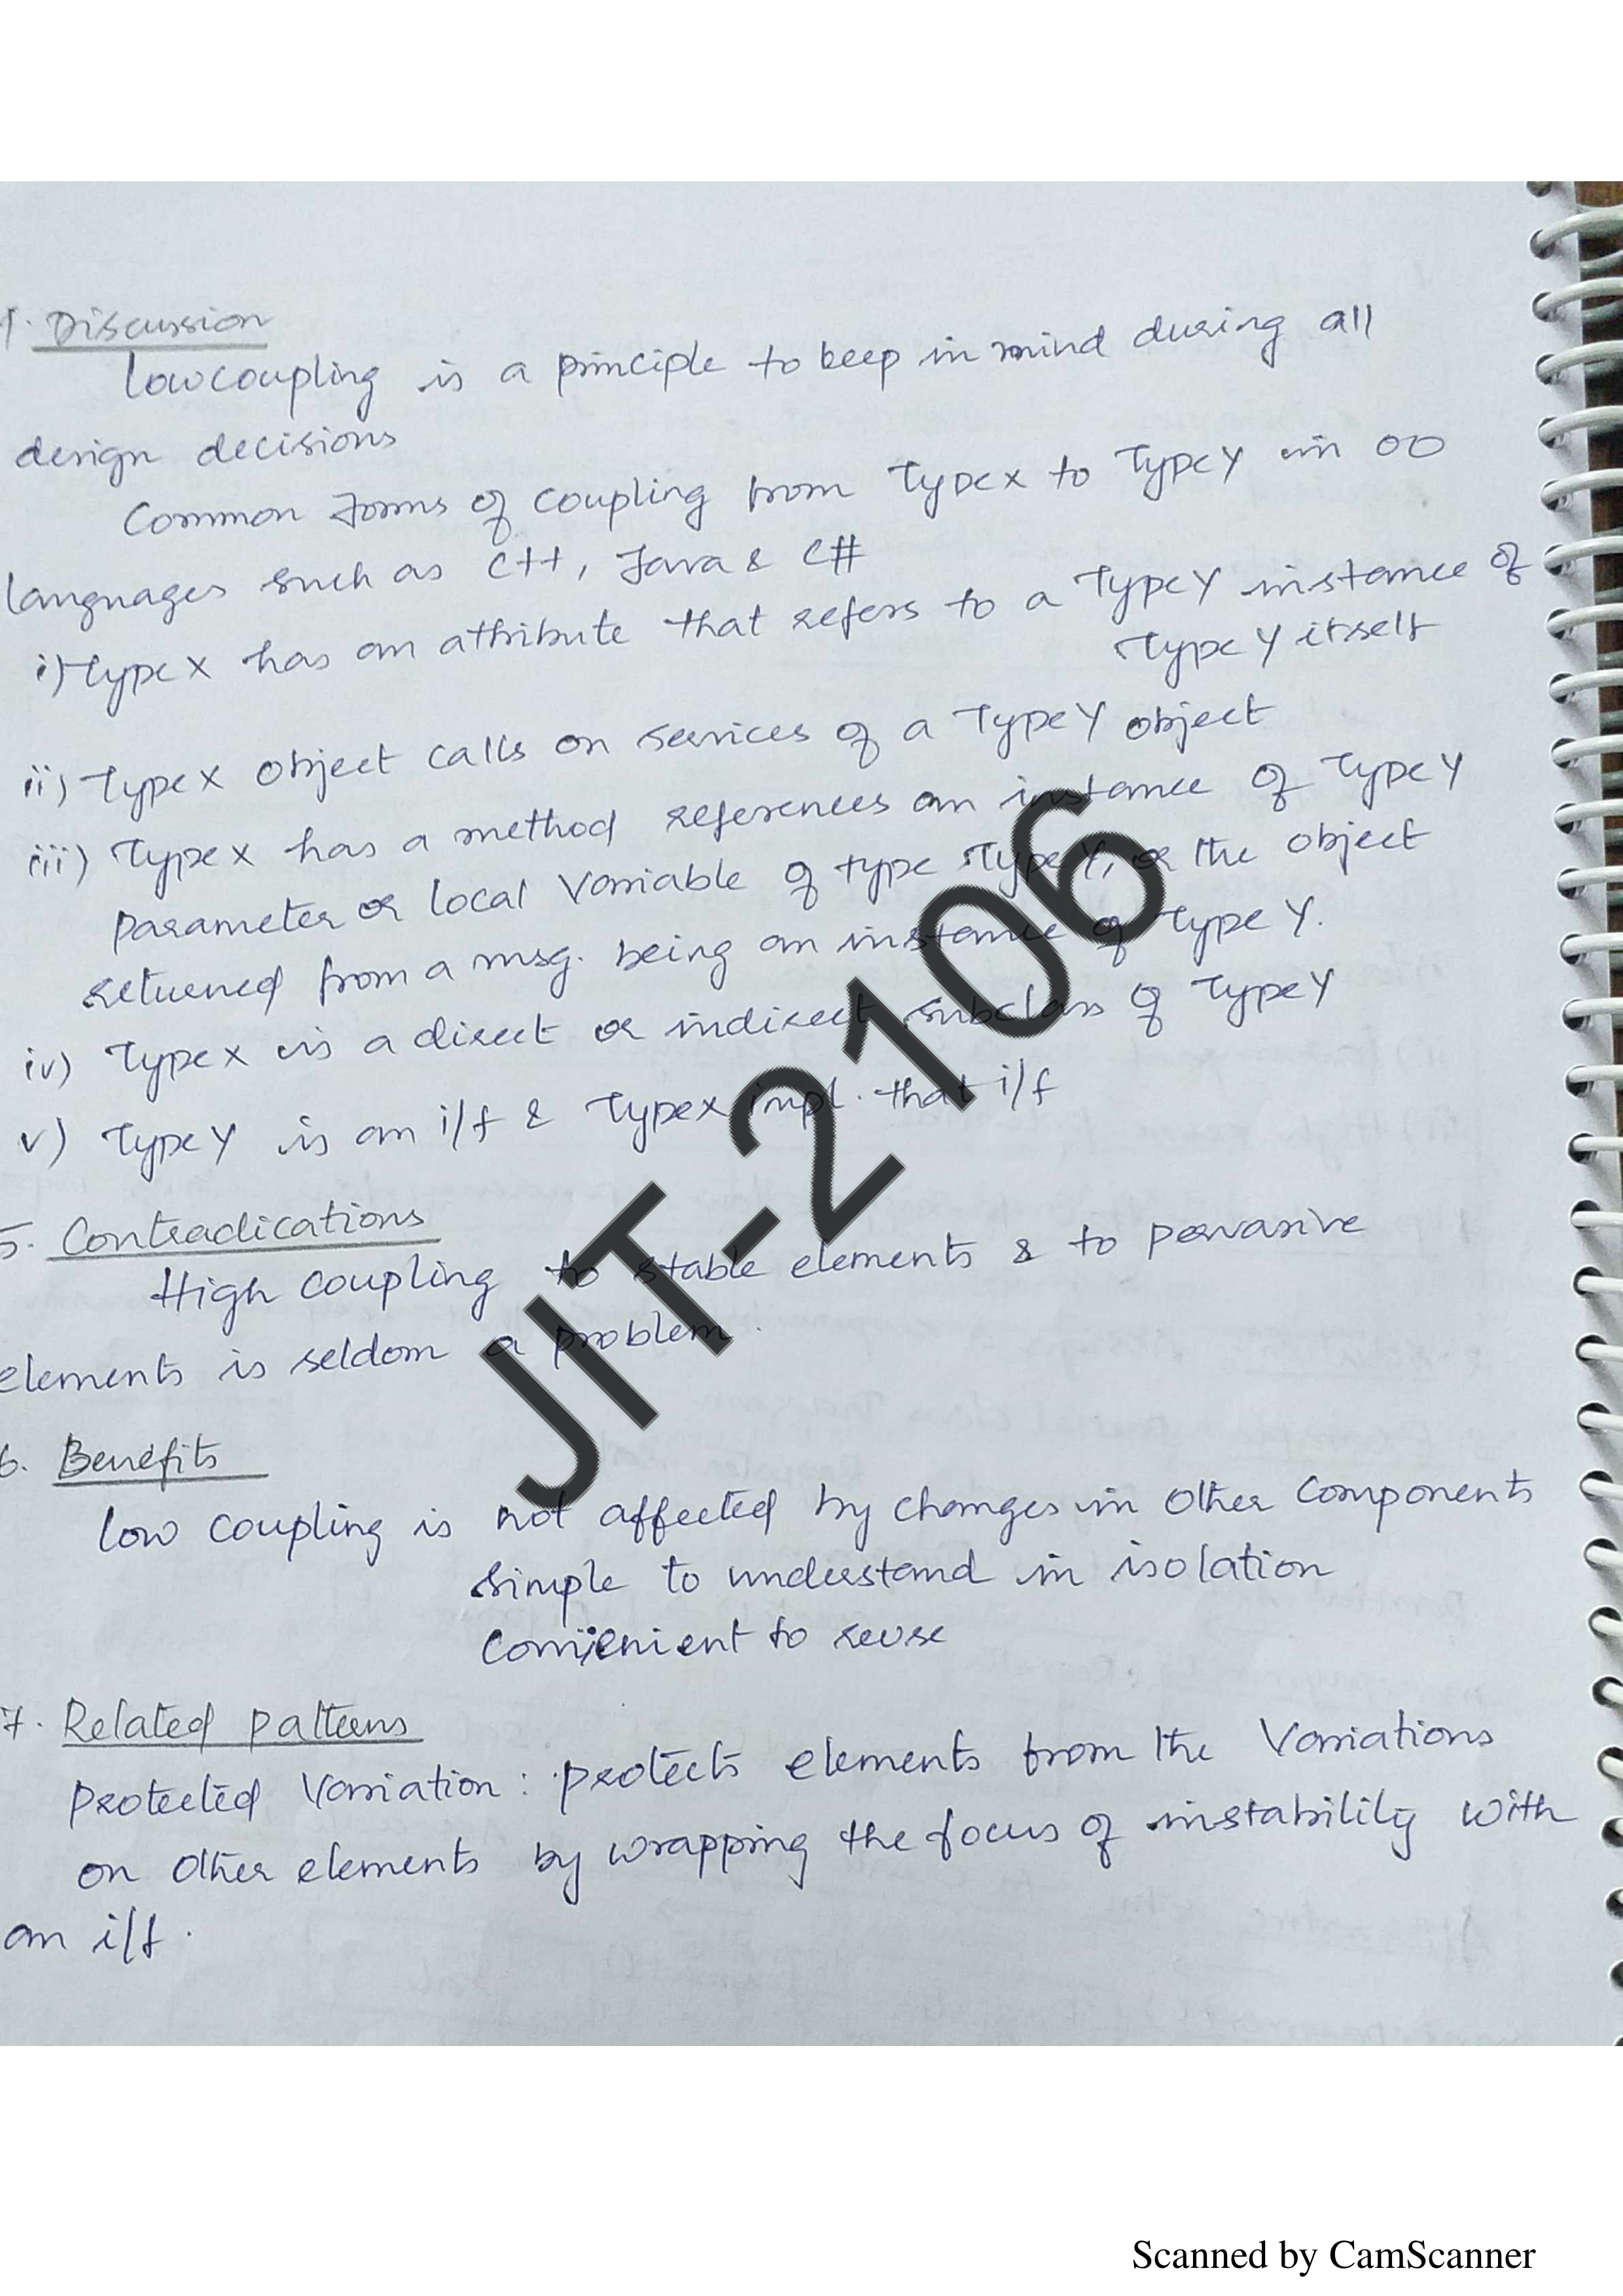 4. Discussion
Low coupling is a principle to keep in mind during all
design decisions
Common forms of coupling from TypeX to TypeY in OO
languages such as C++, Java & C#
i) TypeX has an attribute that refers to a TypeY instance of
TypeY itself
ii) TypeX object calls on services of a TypeY object
iii) TypeX has a method references an instance of TypeY
parameter or local variable of type TypeY, or the object
returned from a msg. being an instance of Type Y.
iv) TypeX is a direct or indirect subclass of TypeY
v) TypeY is an i/f & TypeX impl. that i/f
5. Contradications
High coupling to stable elements & to pervasive
elements is seldom a problem.
6. Benefits
low coupling is not affected by changes in other components
simple to understand in isolation
convenient to reuse
7. Related patterns
Protected Variation : protects elements from the Variations
on other elements by wrapping the focus of instability with
an i/f.
JIT-2106
Scanned by CamScanner